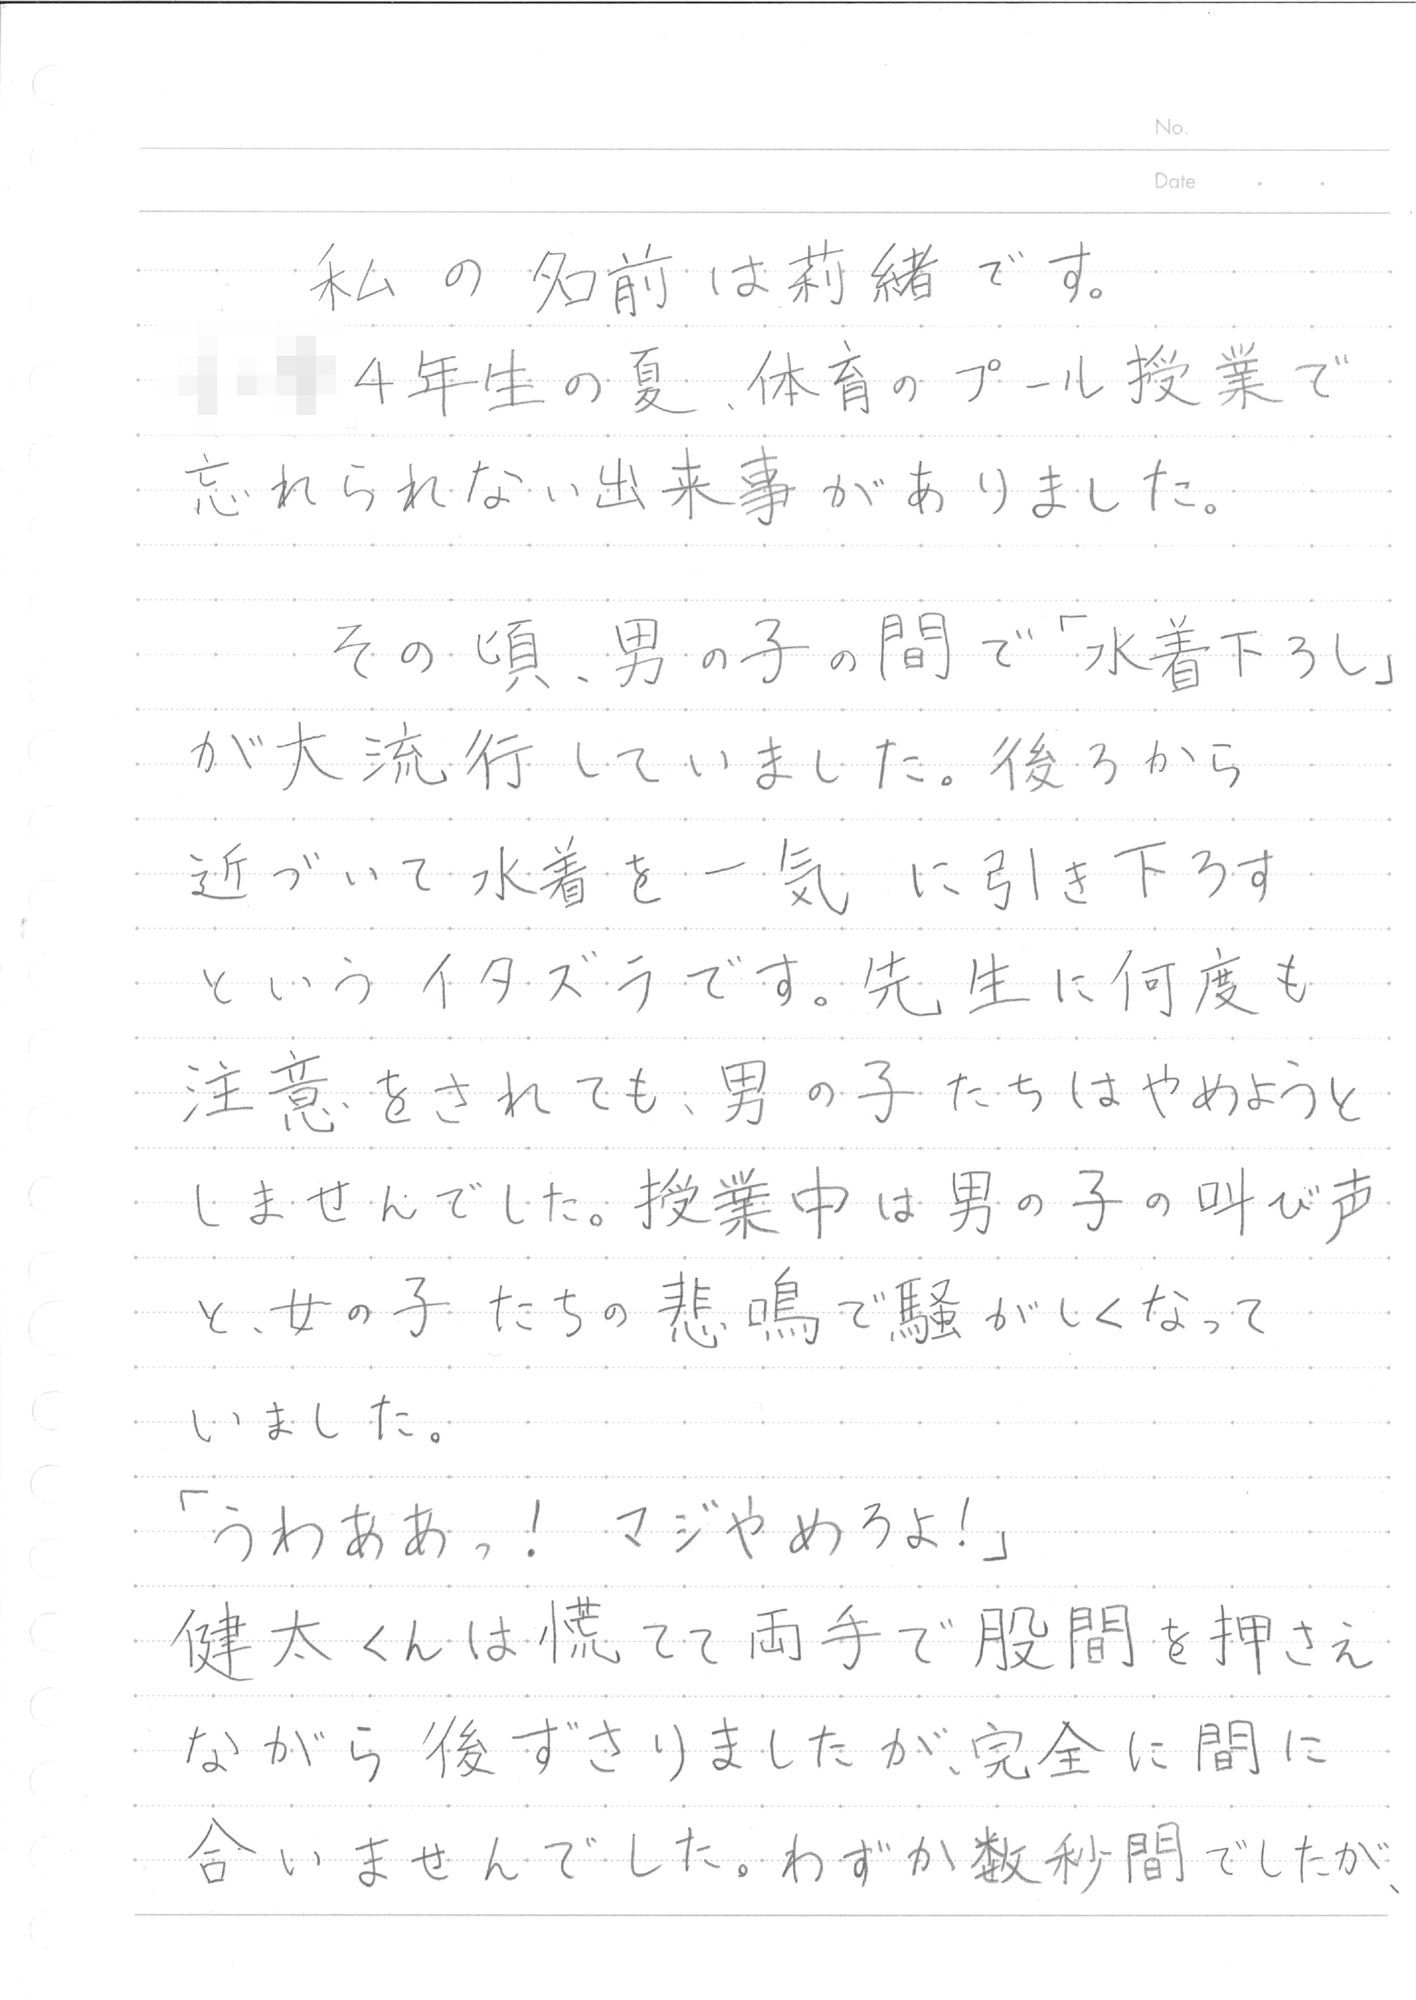 No.
Date
私の名前は莉緒です。
4年生の夏、体育のプール授業で
忘れられない出来事がありました。
その頃、男の子の間で「水着下ろし」
が大流行していました。後ろから
近づいて水着を一気に引き下ろす
というイタズラです。先生に何度も
注意をされても、男の子たちはやめようと
しませんでした。授業中は男の子の叫び声
と、女の子たちの悲鳴で騒がしくなって
いました。
「うわああっ！ マジやめろよ！」
健太くんは慌てて両手で股間を押さえ
ながら後ずさりましたが、完全に間に
合いませんでした。わずか数秒間でしたが、